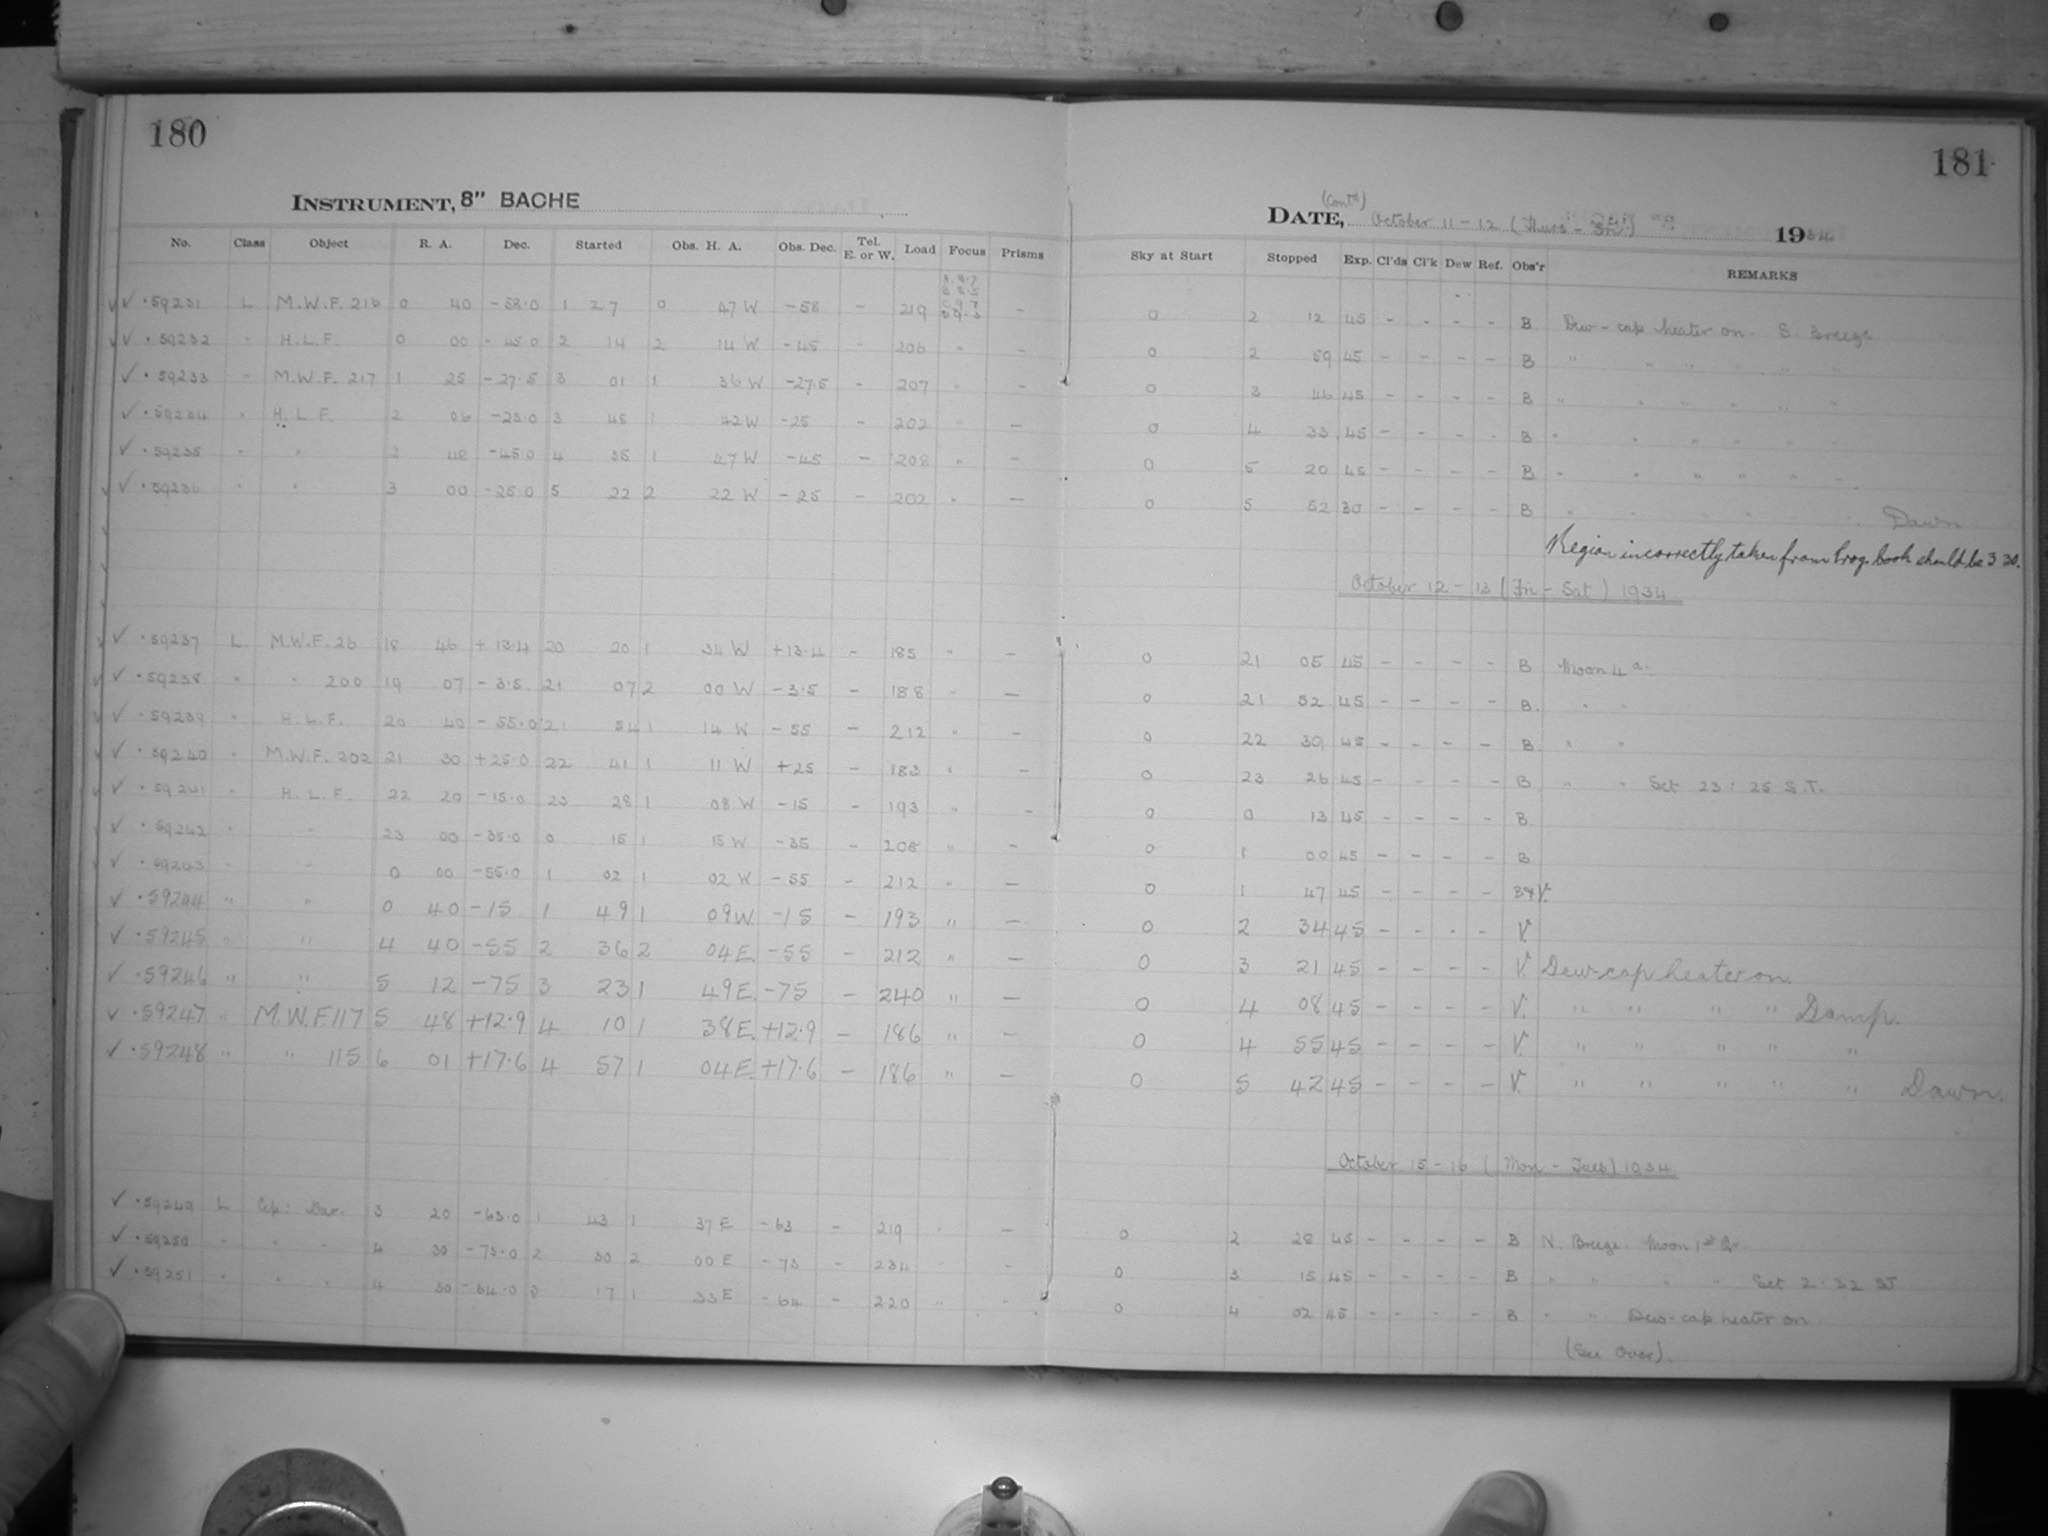 180
181
INSTRUMENT, 8" BACHE
(Cont'd)
DATE, October 11-12 (Thurs - Fri) 1934
No. Class Object R. A. Dec. Started Obs. H. A. Obs. Dec. Tel. E. or W. Load Focus Prisms Sky at Start Stopped Exp. Cl'ds Cl'k Dew Ref. Obs'r REMARKS
✓ ·59231 L M.W.F. 216 0 40 -58.0 1 27 0 47 W -58 - 219 - 0 2 12 45 - - - - B Dew-cap heater on. S. Breeze
✓ ·59232 " H.L.F. 0 00 -45.0 2 14 2 14 W -45 - 206 " - 0 2 59 45 - - - - B " " " " " "
✓ ·59233 " M.W.F. 217 1 25 -27.5 3 01 1 36 W -27.5 - 207 " - 0 3 46 45 - - - - B " " " " " "
✓ ·59234 " H.L.F. 2 06 -25.0 3 48 1 42 W -25 - 202 " - 0 4 33 45 - - - - B " " " " " "
✓ ·59235 " " 2 48 -45.0 4 35 1 47 W -45 - 208 " - 0 5 20 45 - - - - B " " " " " "
✓ ·59236 " " 3 00 -25.0 5 22 2 22 W -25 - 202 " - 0 5 52 30 - - - - B " " " " " " Dawn
Region incorrectly taken from Prog. book should be 3 30.
October 12-13 (Fri - Sat) 1934
✓ ·59237 L M.W.F. 26 18 46 +13.4 20 20 1 34 W +13.4 - 185 " - 0 21 05 45 - - - - B Moon 4 d.
✓ ·59238 " " 200 19 07 -3.5 21 07 2 00 W -3.5 - 188 " - 0 21 52 45 - - - - B. " "
✓ ·59239 " H.L.F. 20 40 -55.0 21 54 1 14 W -55 - 212 " - 0 22 39 45 - - - - B " "
✓ ·59240 " M.W.F. 202 21 30 +25.0 22 41 1 11 W +25 - 183 " - 0 23 26 45 - - - - B " " Set 23:25 S.T.
✓ ·59241 " H.L.F. 22 20 -15.0 23 28 1 08 W -15 - 193 " - 0 0 13 45 - - - - B
✓ ·59242 " " 23 00 -35.0 0 15 1 15 W -35 - 208 " - 0 1 00 45 - - - - B
✓ ·59243 " " 0 00 -55.0 1 02 1 02 W -55 - 212 " - 0 1 47 45 - - - - B+V.
✓ ·59244 " " 0 40 -15 1 49 1 09 W. -15 - 193 " - 0 2 34 45 - - - - V.
✓ ·59245 " " 4 40 -55 2 36 2 04 E. -55 - 212 " - 0 3 21 45 - - - - V. Dew-cap heater on.
✓ ·59246 " " 5 12 -75 3 23 1 49 E. -75 - 240 " - 0 4 08 45 - - - - V. " " " " Damp.
✓ ·59247 " M.W.F. 117 5 48 +12.9 4 10 1 38 E. +12.9 - 186 " - 0 4 55 45 - - - - V. " " " " "
✓ ·59248 " " 115 6 01 +17.6 4 57 1 04 E. +17.6 - 186 " - 0 5 42 45 - - - - V. " " " " " Dawn.
October 15-16 (Mon - Tues) 1934
✓ ·59249 L Cep: Var. 3 20 -63.0 1 43 1 37 E -63 - 219 " - 0 2 28 45 - - - - B N. Breeze. Moon 1st Qr.
✓ ·59250 " " " 4 30 -73.0 2 30 2 00 E -73 - 234 " - 0 3 15 45 - - - - B " " " " Set 2:32 ST
✓ ·59251 " " " 4 50 -64.0 3 17 1 33 E -64 - 220 " - 0 4 02 45 - - - - B " " Dew-cap heater on
(See Over).